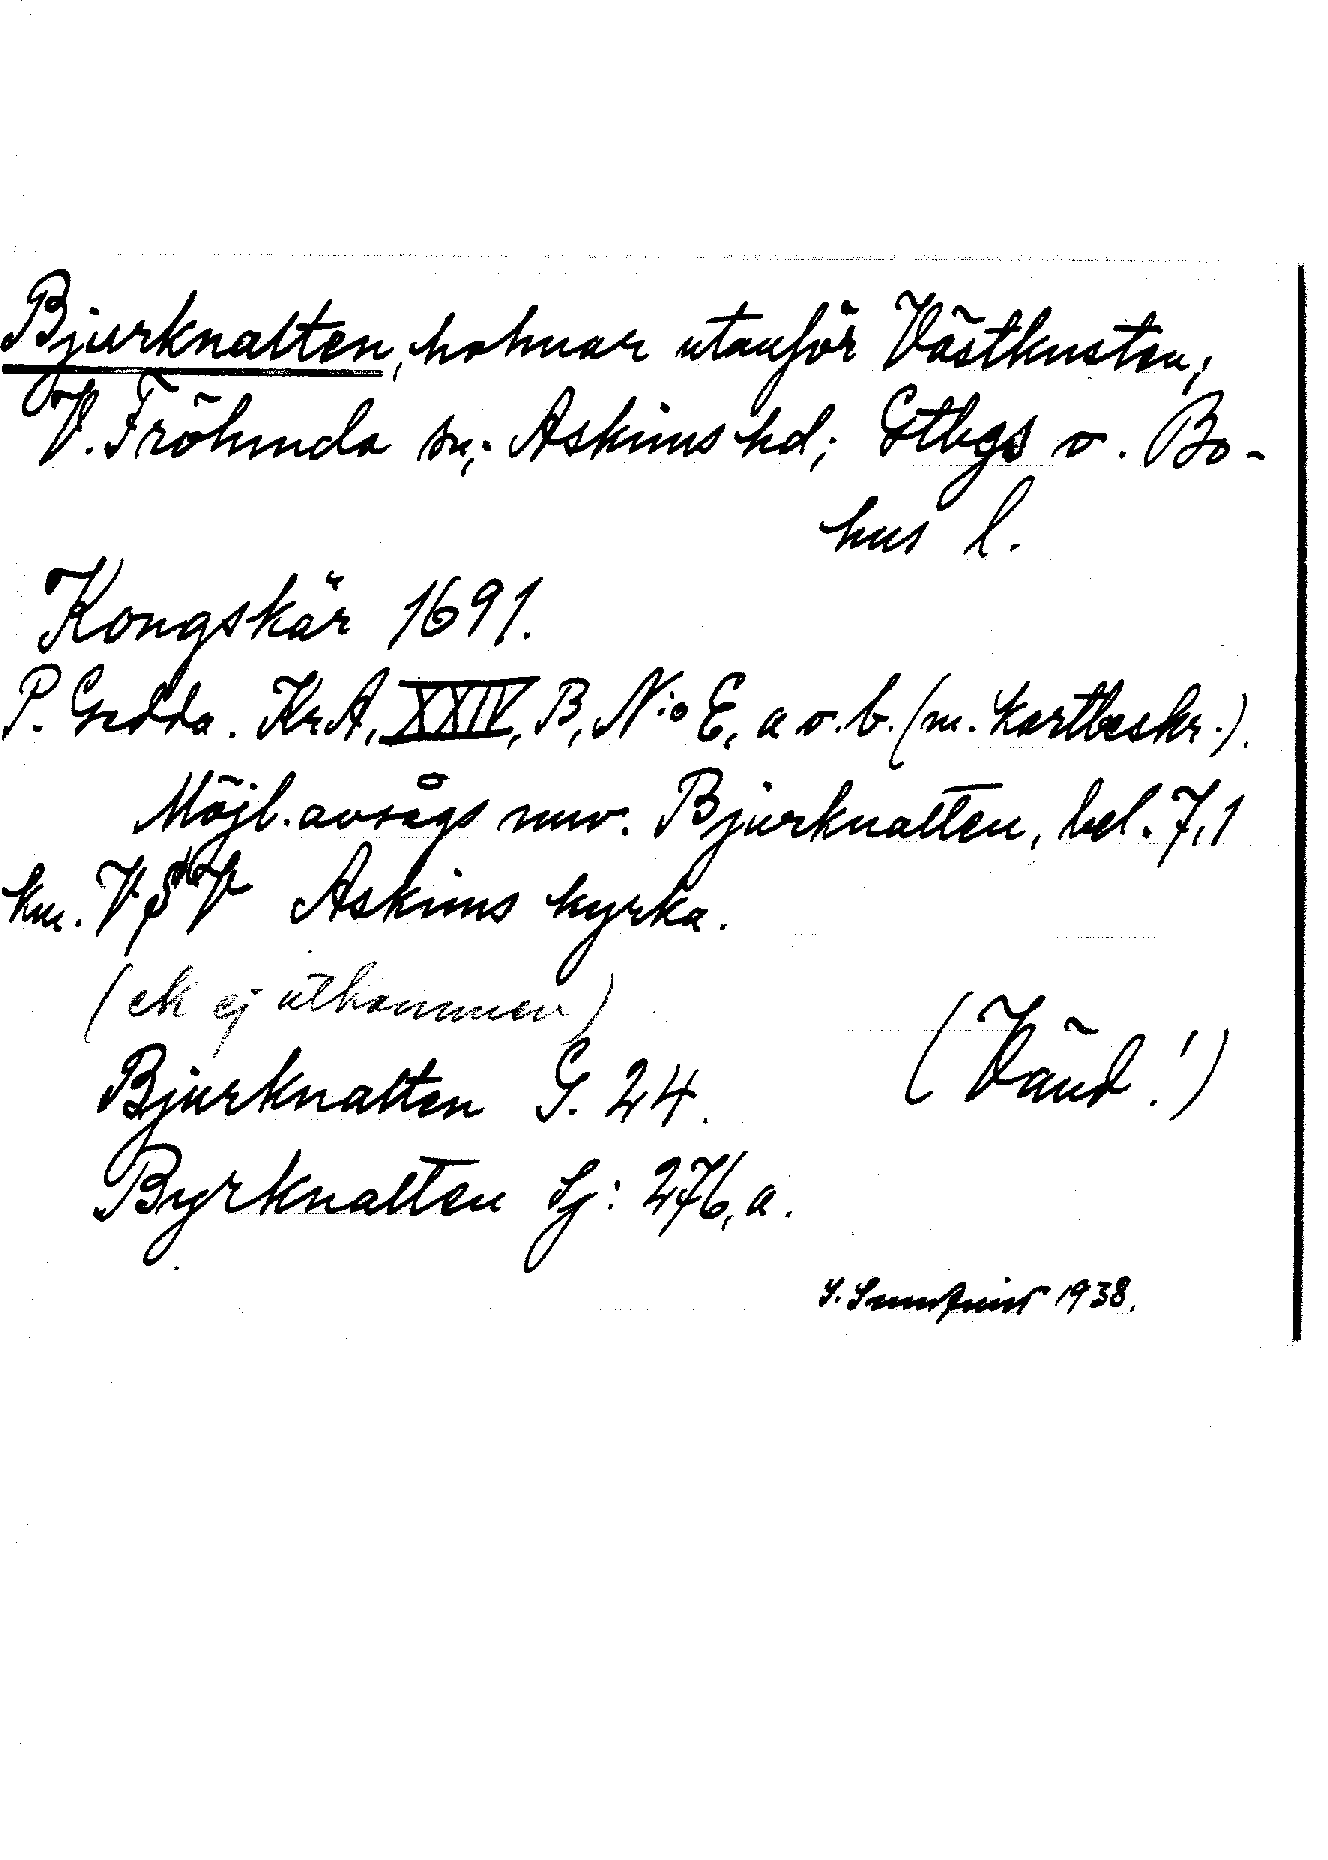 Bjurknalten, holmar utanför Västkusten,
V. Frölunda sn; Askims hd; Gtbgs o. Bo-
hus l.
Kongskär 1691.
P. Gedda. KrA, XXIV, B, N:o E, a o. b. (m. kartbeskr.).
Möjl. avsågs nuv. Bjurknalten, bel. 7,1
km. V t V Askims kyrka.
(ek ej utkommen)
(Vänd!)
Bjurknalten G. 24.
Byrknalten Sj: 276, a.
1938.